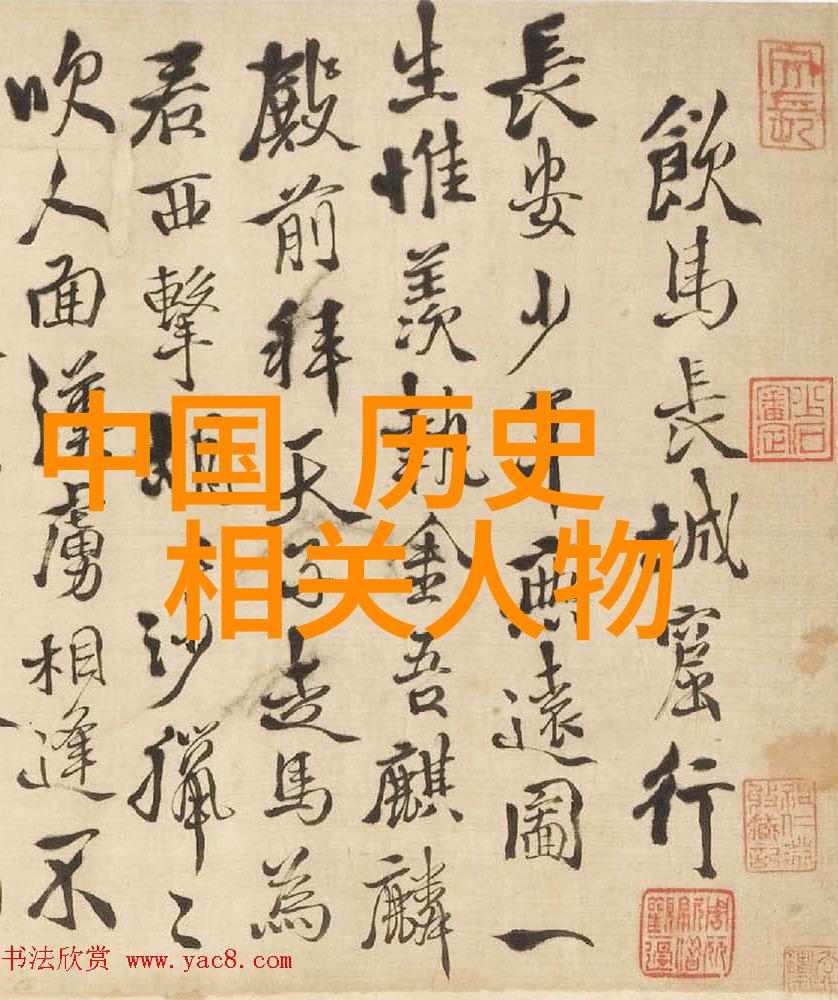 飲馬長城窟行
長安少年無遠圖一
生惟羨執金吾麒麟
殿前拜天子走馬為
君西擊胡々沙獵々
吹人面漢虜相逢不
中国 历史
相关人物
书法欣赏 www.yac8.com